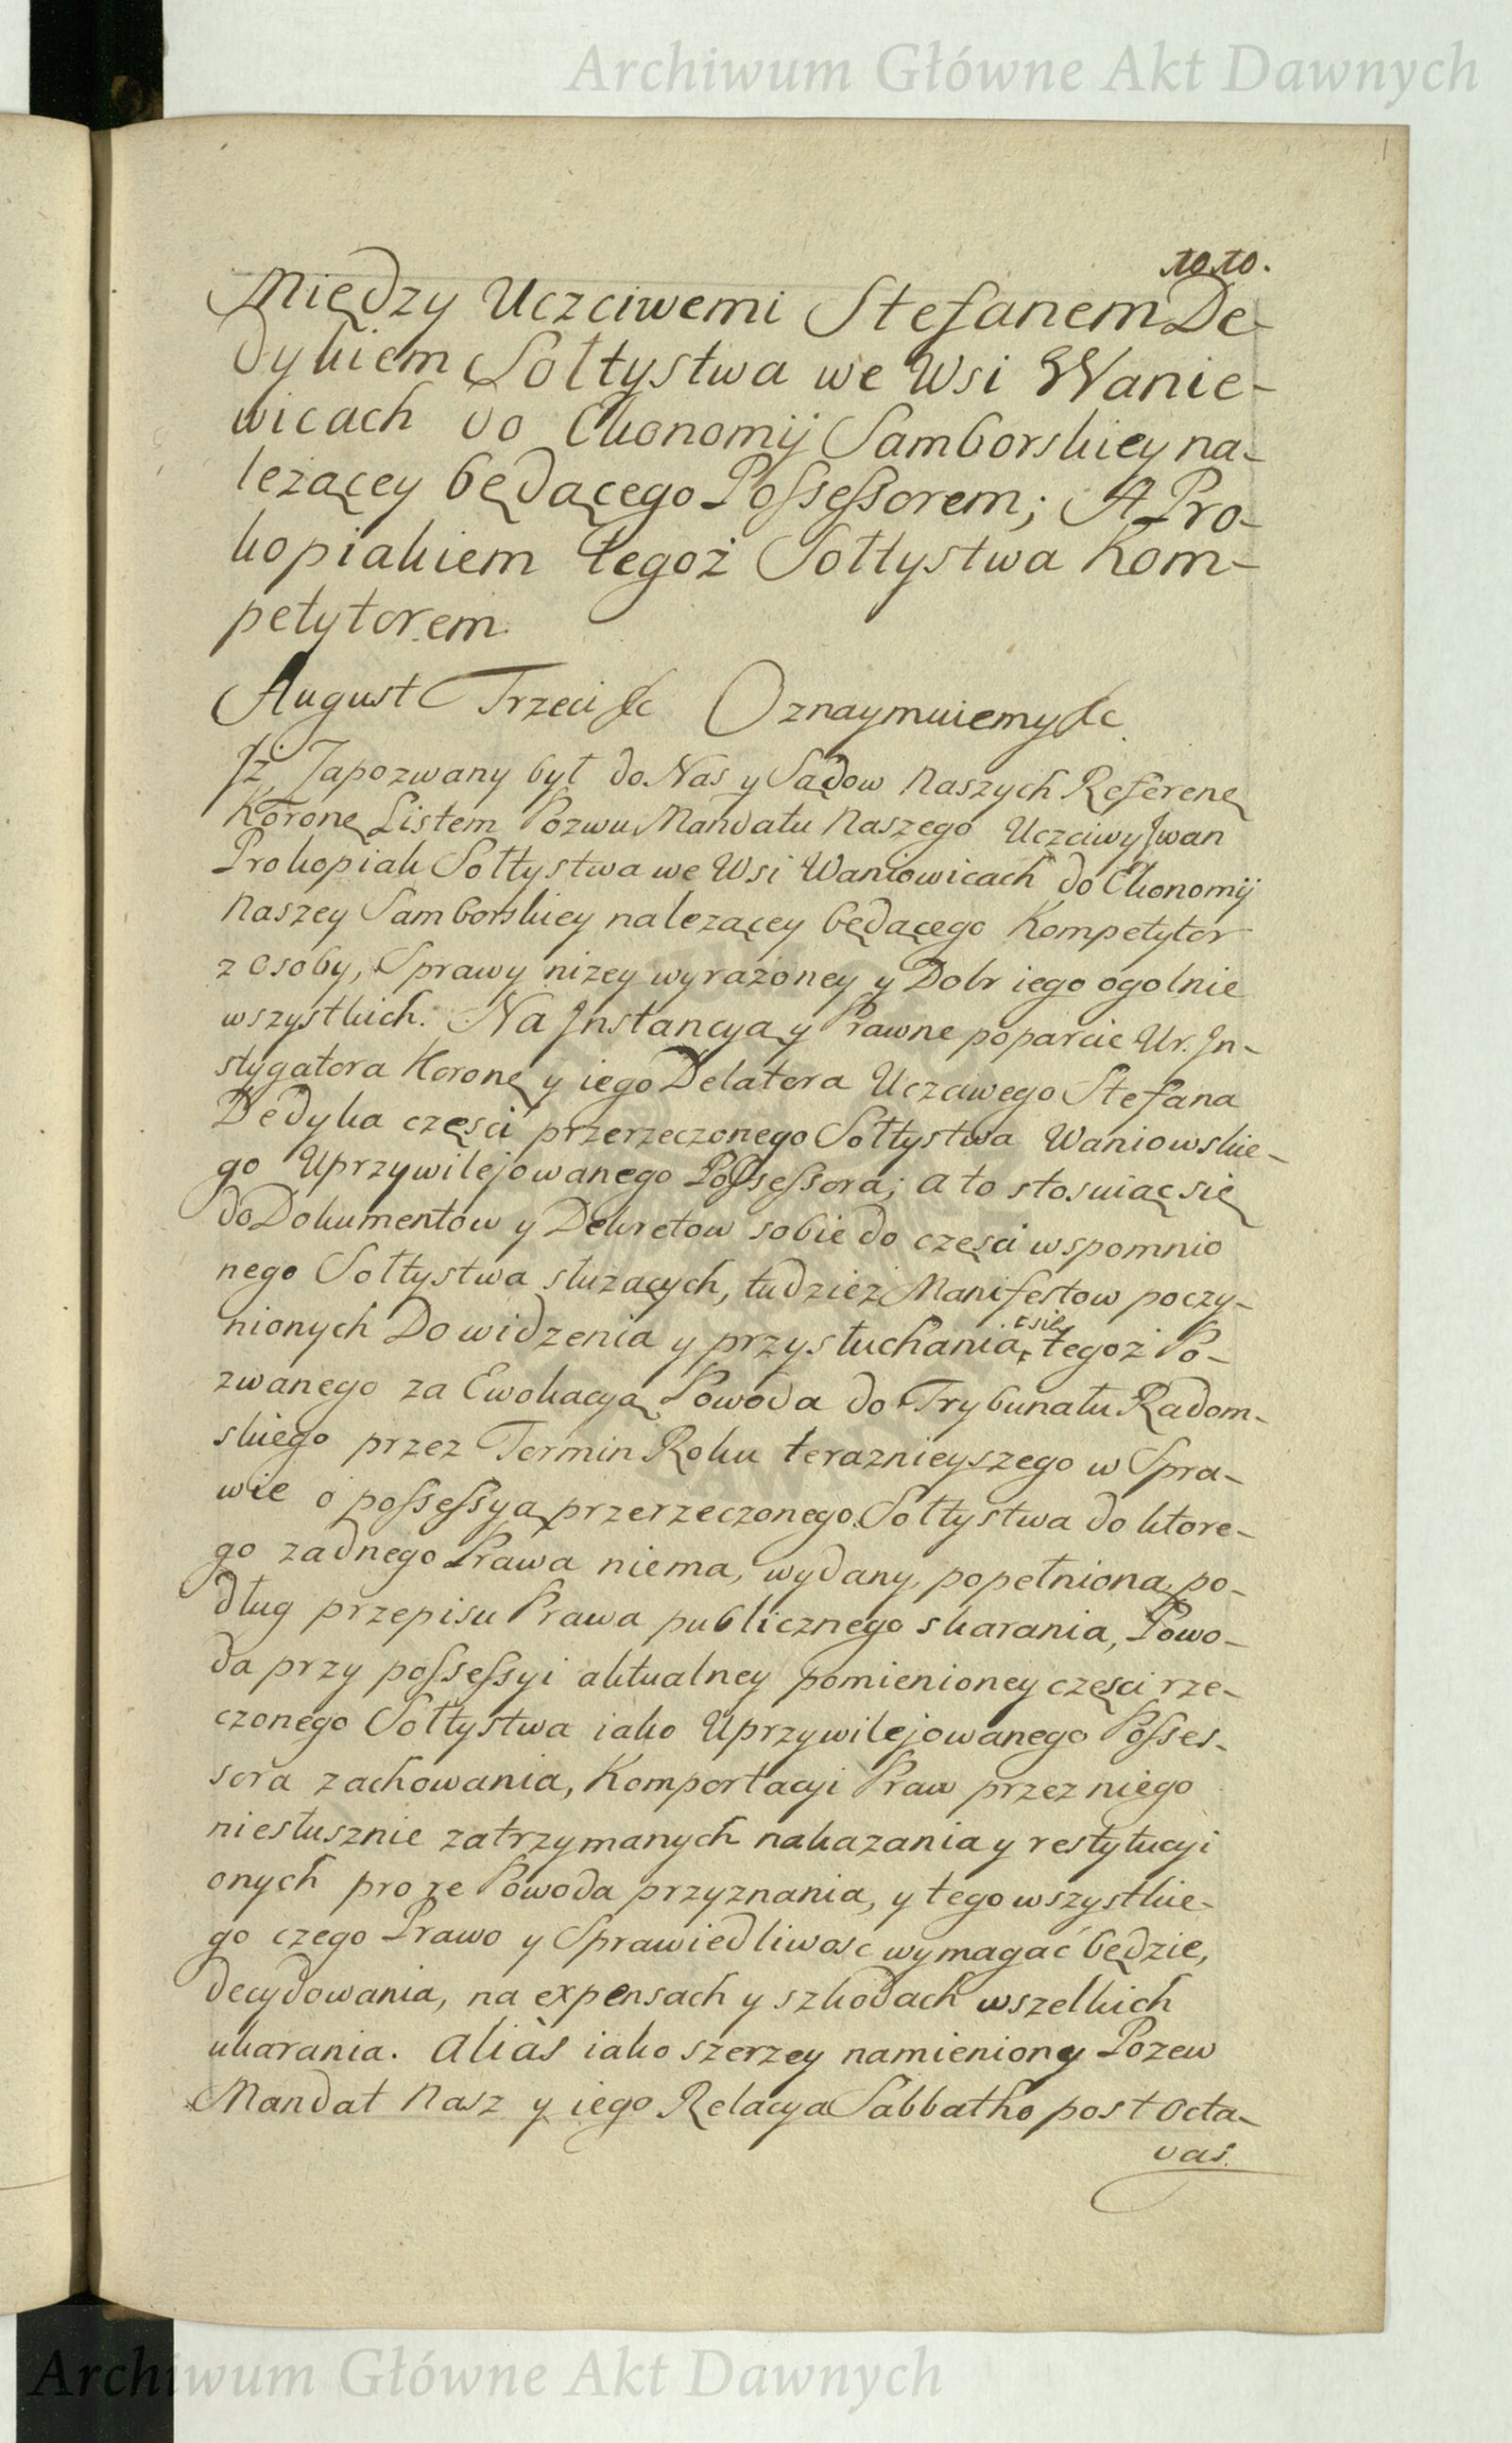 Archiwum Główne Akt Dawnych
1010.
Między Uczciwemi Stefanem De-
dykiem Sołtystwa we Wsi Wanie-
wicach do Ekonomij Samborskiey na-
leżącey będącego Possessorem; A Pro-
kopiakiem tegoż Sołtystwa Kom-
petytorem.
August Trzeci &c Oznaymuiemy &c.
Iż Zapozwany był do Nas y Sądow Naszych Referenę
Koronę Listem Pozwu Mandatu Naszego Uczciwy Iwan
Prokopiak Sołtystwa we Wsi Waniowicach do Ekonomij
Naszey Samborskiey nalezącey będącego Kompetytor
z Osoby, Sprawy niżey wyrażoney y Dobr iego ogolnie
wszystkich. Na Instancyą y Prawne poparcie Ur. In-
stygatora Koronę y iego Delatora Uczciwego Stefana
Dedyka części przerzeczonego Sołtystwa Waniowskie-
go Uprzywilejowanego Possessora; a to stosuiąc się
do Dokumentow y Dekretow sobie do części wspomnio
nego Sołtystwa służących, tudzież Manifestow poczy-
nionych Do widzenia y przysłuchania się tegoż Po-
zwanego za Ewokacyą Powoda do Trybunału Radom-
skiego przez Termin Roku teraznieyszego w Spra-
wie o possessyą przerzeczonego Sołtystwa do ktore-
go zadnego Prawa niema, wydany, popełnioną po-
dług przepisu Prawa publicznego skarania, Powo-
da przy possessyi aktualney pomienioney części rze-
czonego Sołtystwa iako Uprzywilejowanego Posses-
sora zachowania, Komportacyi Praw przez niego
niesłusznie zatrzymanych nakazania y restytucyi
onych pro re Powoda przyznania, y tego wszystkie-
go czego Prawo y Sprawiedliwosc wymagać będzie,
decydowania, na expensach y szkodach wszelkich
ukarania. alias iako szerzey namieniony Pozew
Mandat Nasz y iego Relacya Sabbatho post Octa-
vas.
Archiwum Główne Akt Dawnych